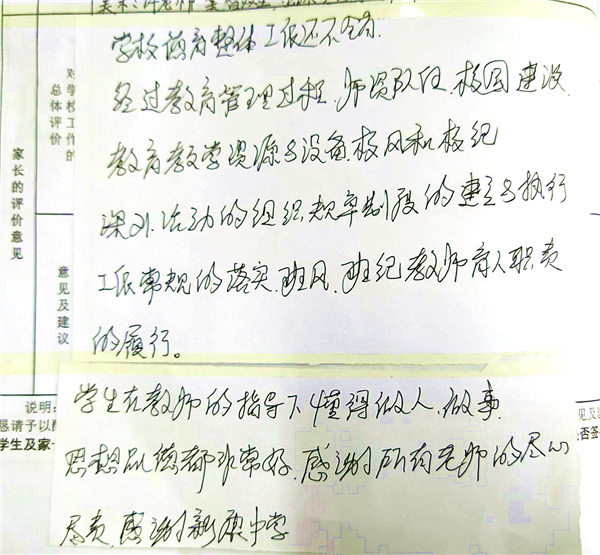 学校教育整体工作还不错.
经过教育管理过程.师资队伍.校园建设.
教育教学资源与设备.校风和校纪
课外活动的组织规章制度的建立与执行
工作常规的落实.班风.班纪教师育人职责
的履行。
学生在教师的指导下懂得做人.做事.
思想品德都非常好.感谢所有老师的尽心
尽责.感谢新源中学
家长的评价意见
对学校工作的
总体评价
意见及
建议
说明:
恳请予以
学生及家
见及
是否签